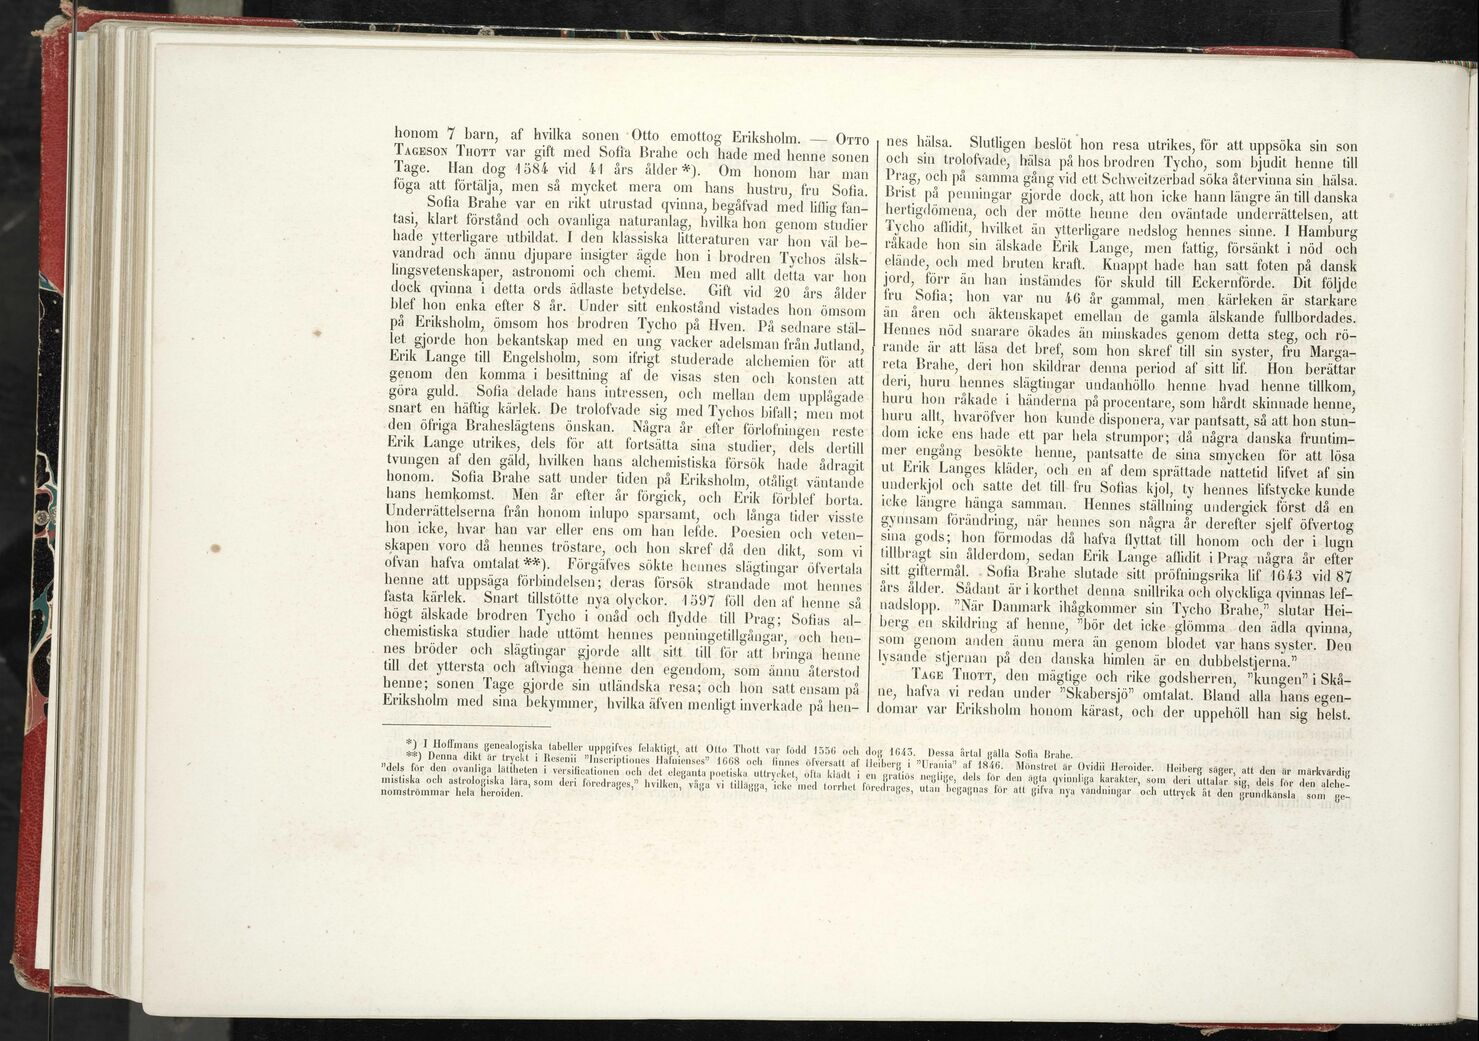 honom 7 barn, af hvilka sonen Otto emottog Eriksholm. — OTTO
TAGESON THOTT var gift med Sofia Brahe och hade med henne sonen
Tage. Han dog 1584 vid 41 års ålder *). Om honom har man
föga att förtälja, men så mycket mera om hans hustru, fru Sofia.
Sofia Brahe var en rikt utrustad qvinna, begåfvad med liflig fan-
tasi, klart förstånd och ovanliga naturanlag, hvilka hon genom studier
hade ytterligare utbildat. I den klassiska litteraturen var hon väl be-
vandrad och ännu djupare insigter ägde hon i brodren Tychos älsk-
lingsvetenskaper, astronomi och chemi. Men med allt detta var hon
dock qvinna i detta ords ädlaste betydelse. Gift vid 20 års ålder
blef hon enka efter 8 år. Under sitt enkostånd vistades hon ömsom
på Eriksholm, ömsom hos brodren Tycho på Hven. På sednare stäl-
let gjorde hon bekantskap med en ung vacker adelsman från Jutland,
Erik Lange till Engelsholm, som ifrigt studerade alchemien för att
genom den komma i besittning af de visas sten och konsten att
göra guld. Sofia delade hans intressen, och mellan dem upplågade
snart en häftig kärlek. De trolofvade sig med Tychos bifall; men mot
den öfriga Braheslägtens önskan. Några år efter förlofningen reste
Erik Lange utrikes, dels för att fortsätta sina studier, dels dertill
tvungen af den gäld, hvilken hans alchemistiska försök hade ådragit
honom. Sofia Brahe satt under tiden på Eriksholm, otåligt väntande
hans hemkomst. Men år efter år förgick, och Erik förblef borta.
Underrättelserna från honom inlupo sparsamt, och långa tider visste
hon icke, hvar han var eller ens om han lefde. Poesien och veten-
skapen voro då hennes tröstare, och hon skref då den dikt, som vi
ofvan hafva omtalat **). Förgäfves sökte hennes slägtingar öfvertala
henne att uppsäga förbindelsen; deras försök strandade mot hennes
fasta kärlek. Snart tillstötte nya olyckor. 1597 föll den af henne så
högt älskade brodren Tycho i onåd och flydde till Prag; Sofias al-
chemistiska studier hade uttömt hennes penningetillgångar, och hen-
nes bröder och slägtingar gjorde allt sitt till för att bringa henne
till det yttersta och aftvinga henne den egendom, som ännu återstod
henne; sonen Tage gjorde sin utländska resa; och hon satt ensam på
Eriksholm med sina bekymmer, hvilka äfven menligt inverkade på hen-
nes hälsa. Slutligen beslöt hon resa utrikes, för att uppsöka sin son
och sin trolofvade, hälsa på hos brodren Tycho, som bjudit henne till
Prag, och på samma gång vid ett Schweitzerbad söka återvinna sin hälsa.
Brist på penningar gjorde dock, att hon icke hann längre än till danska
hertigdömena, och der mötte henne den oväntade underrättelsen, att
Tycho aflidit, hvilket än ytterligare nedslog hennes sinne. I Hamburg
råkade hon sin älskade Erik Lange, men fattig, försänkt i nöd och
elände, och med bruten kraft. Knappt hade han satt foten på dansk
jord, förr än han instämdes för skuld till Eckernförde. Dit följde
fru Sofia; hon var nu 46 år gammal, men kärleken är starkare
än åren och äktenskapet emellan de gamla älskande fullbordades.
Hennes nöd snarare ökades än minskades genom detta steg, och rö-
rande är att läsa det bref, som hon skref till sin syster, fru Marga-
reta Brahe, deri hon skildrar denna period af sitt lif. Hon berättar
deri, huru hennes slägtingar undanhöllo henne hvad henne tillkom,
huru hon råkade i händerna på procentare, som hårdt skinnade henne,
huru allt, hvaröfver hon kunde disponera, var pantsatt, så att hon stun-
dom icke ens hade ett par hela strumpor; då några danska fruntim-
mer engång besökte henne, pantsatte de sina smycken för att lösa
ut Erik Langes kläder, och en af dem sprättade nattetid lifvet af sin
underkjol och satte det till fru Sofias kjol, ty hennes lifstycke kunde
icke längre hänga samman. Hennes ställning undergick först då en
gynnsam förändring, när hennes son några år derefter sjelf öfvertog
sina gods; hon förmodas då hafva flyttat till honom och der i lugn
tillbragt sin ålderdom, sedan Erik Lange aflidit i Prag några år efter
sitt giftermål. Sofia Brahe slutade sitt pröfningsrika lif 1643 vid 87
års ålder. Sådant är i korthet denna snillrika och olyckliga qvinnas lef-
nadslopp. "När Danmark ihågkommer sin Tycho Brahe," slutar Hei-
berg en skildring af henne, "bör det icke glömma den ädla qvinna,
som genom anden ännu mera än genom blodet var hans syster. Den
lysande stjernan på den danska himlen är en dubbelstjerna."
TAGE THOTT, den mägtige och rike godsherren, "kungen" i Skå-
ne, hafva vi redan under "Skabersjö" omtalat. Bland alla hans egen-
domar var Eriksholm honom kärast, och der uppehöll han sig helst.
*) I Hoffmans genealogiska tabeller uppgifves felaktigt, att Otto Thott var född 1556 och dog 1643. Dessa årtal gälla Sofia Brahe.
**) Denna dikt är tryckt i Resenii "Inscriptiones Hafnienses" 1668 och finnes öfversatt af Heiberg i "Urania" af 1846. Mönstret är Ovidii Heroider. Heiberg säger, att den är märkvärdig
"dels för den ovanliga lättheten i versificationen och det eleganta poetiska uttrycket, ofta klädt i en gratiös neglige, dels för den ägta qvinnliga karakter, som deri uttalar sig, dels för den alche-
mistiska och astrologiska lära, som deri föredrages," hvilken, våga vi tillägga, icke med torrhet föredrages, utan begagnas för att gifva nya vändningar och uttryck åt den grundkänsla som ge-
nomströmmar hela heroiden.